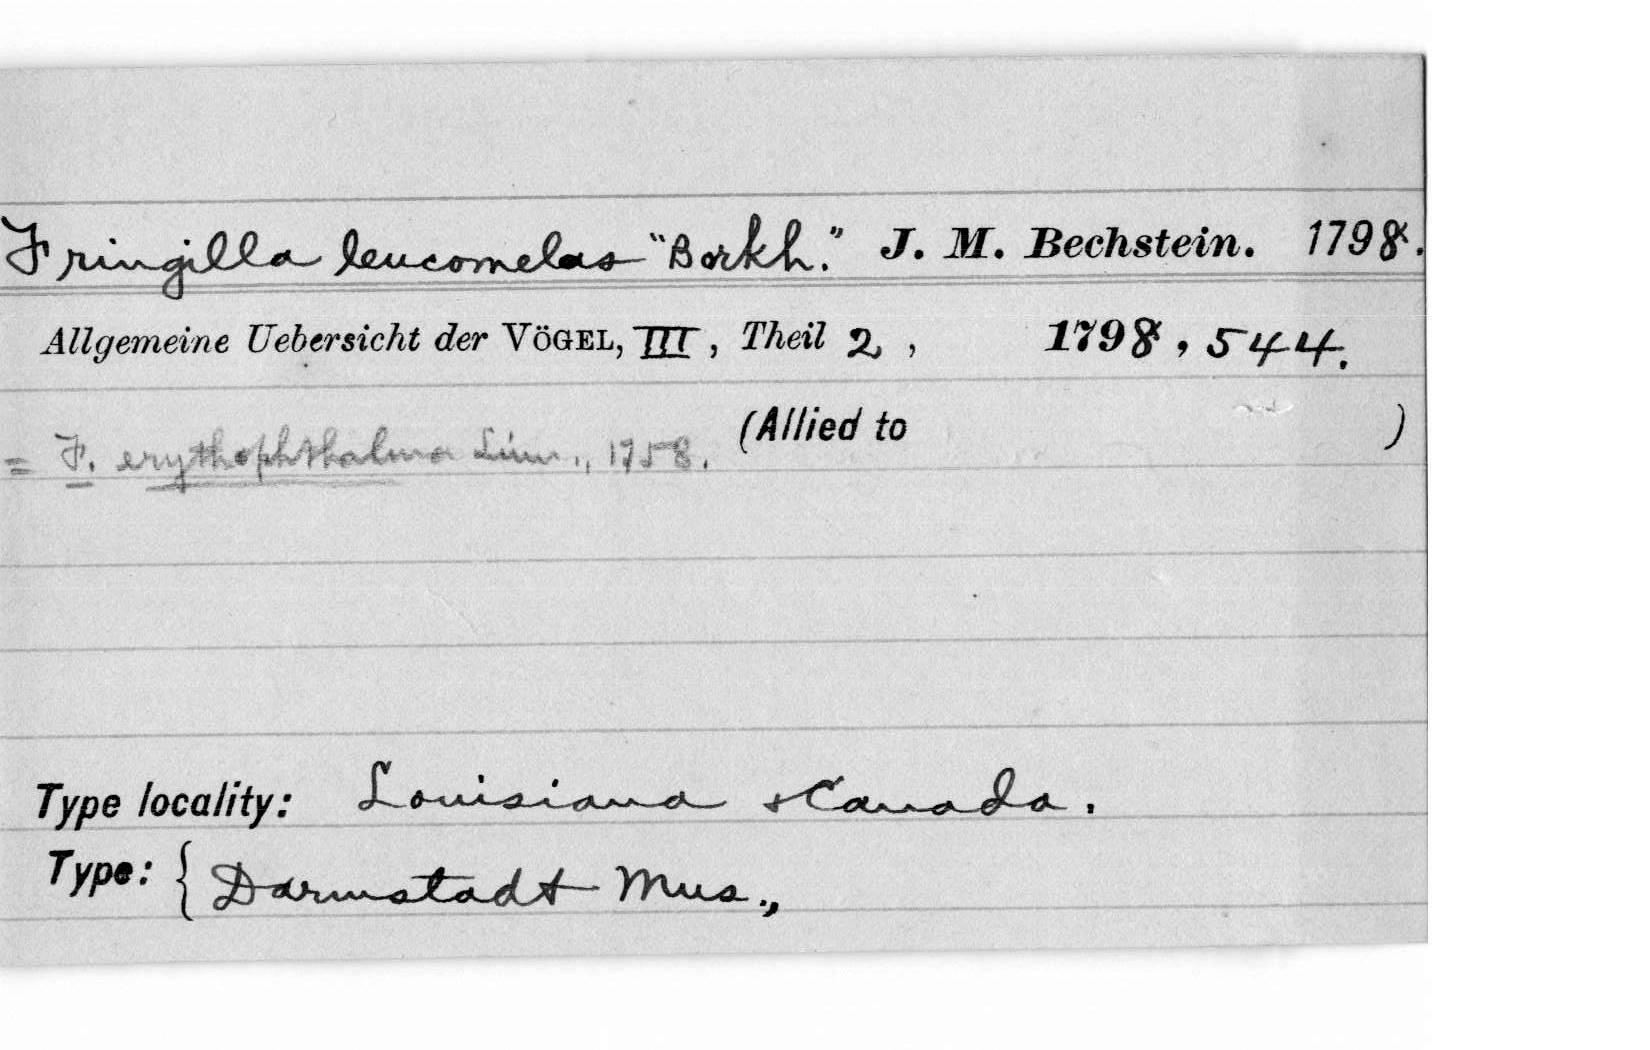 Fringilla leucomelas "Borkh." J. M. Bechstein. 1798.
Allgemeine Uebersicht der VÖGEL, III, Theil 2, 1798, 544.
(Allied to )
= F. erythophthalma Linn., 1758.
Type locality: Louisiana & Canada.
Type: { Darmstadt Mus.,